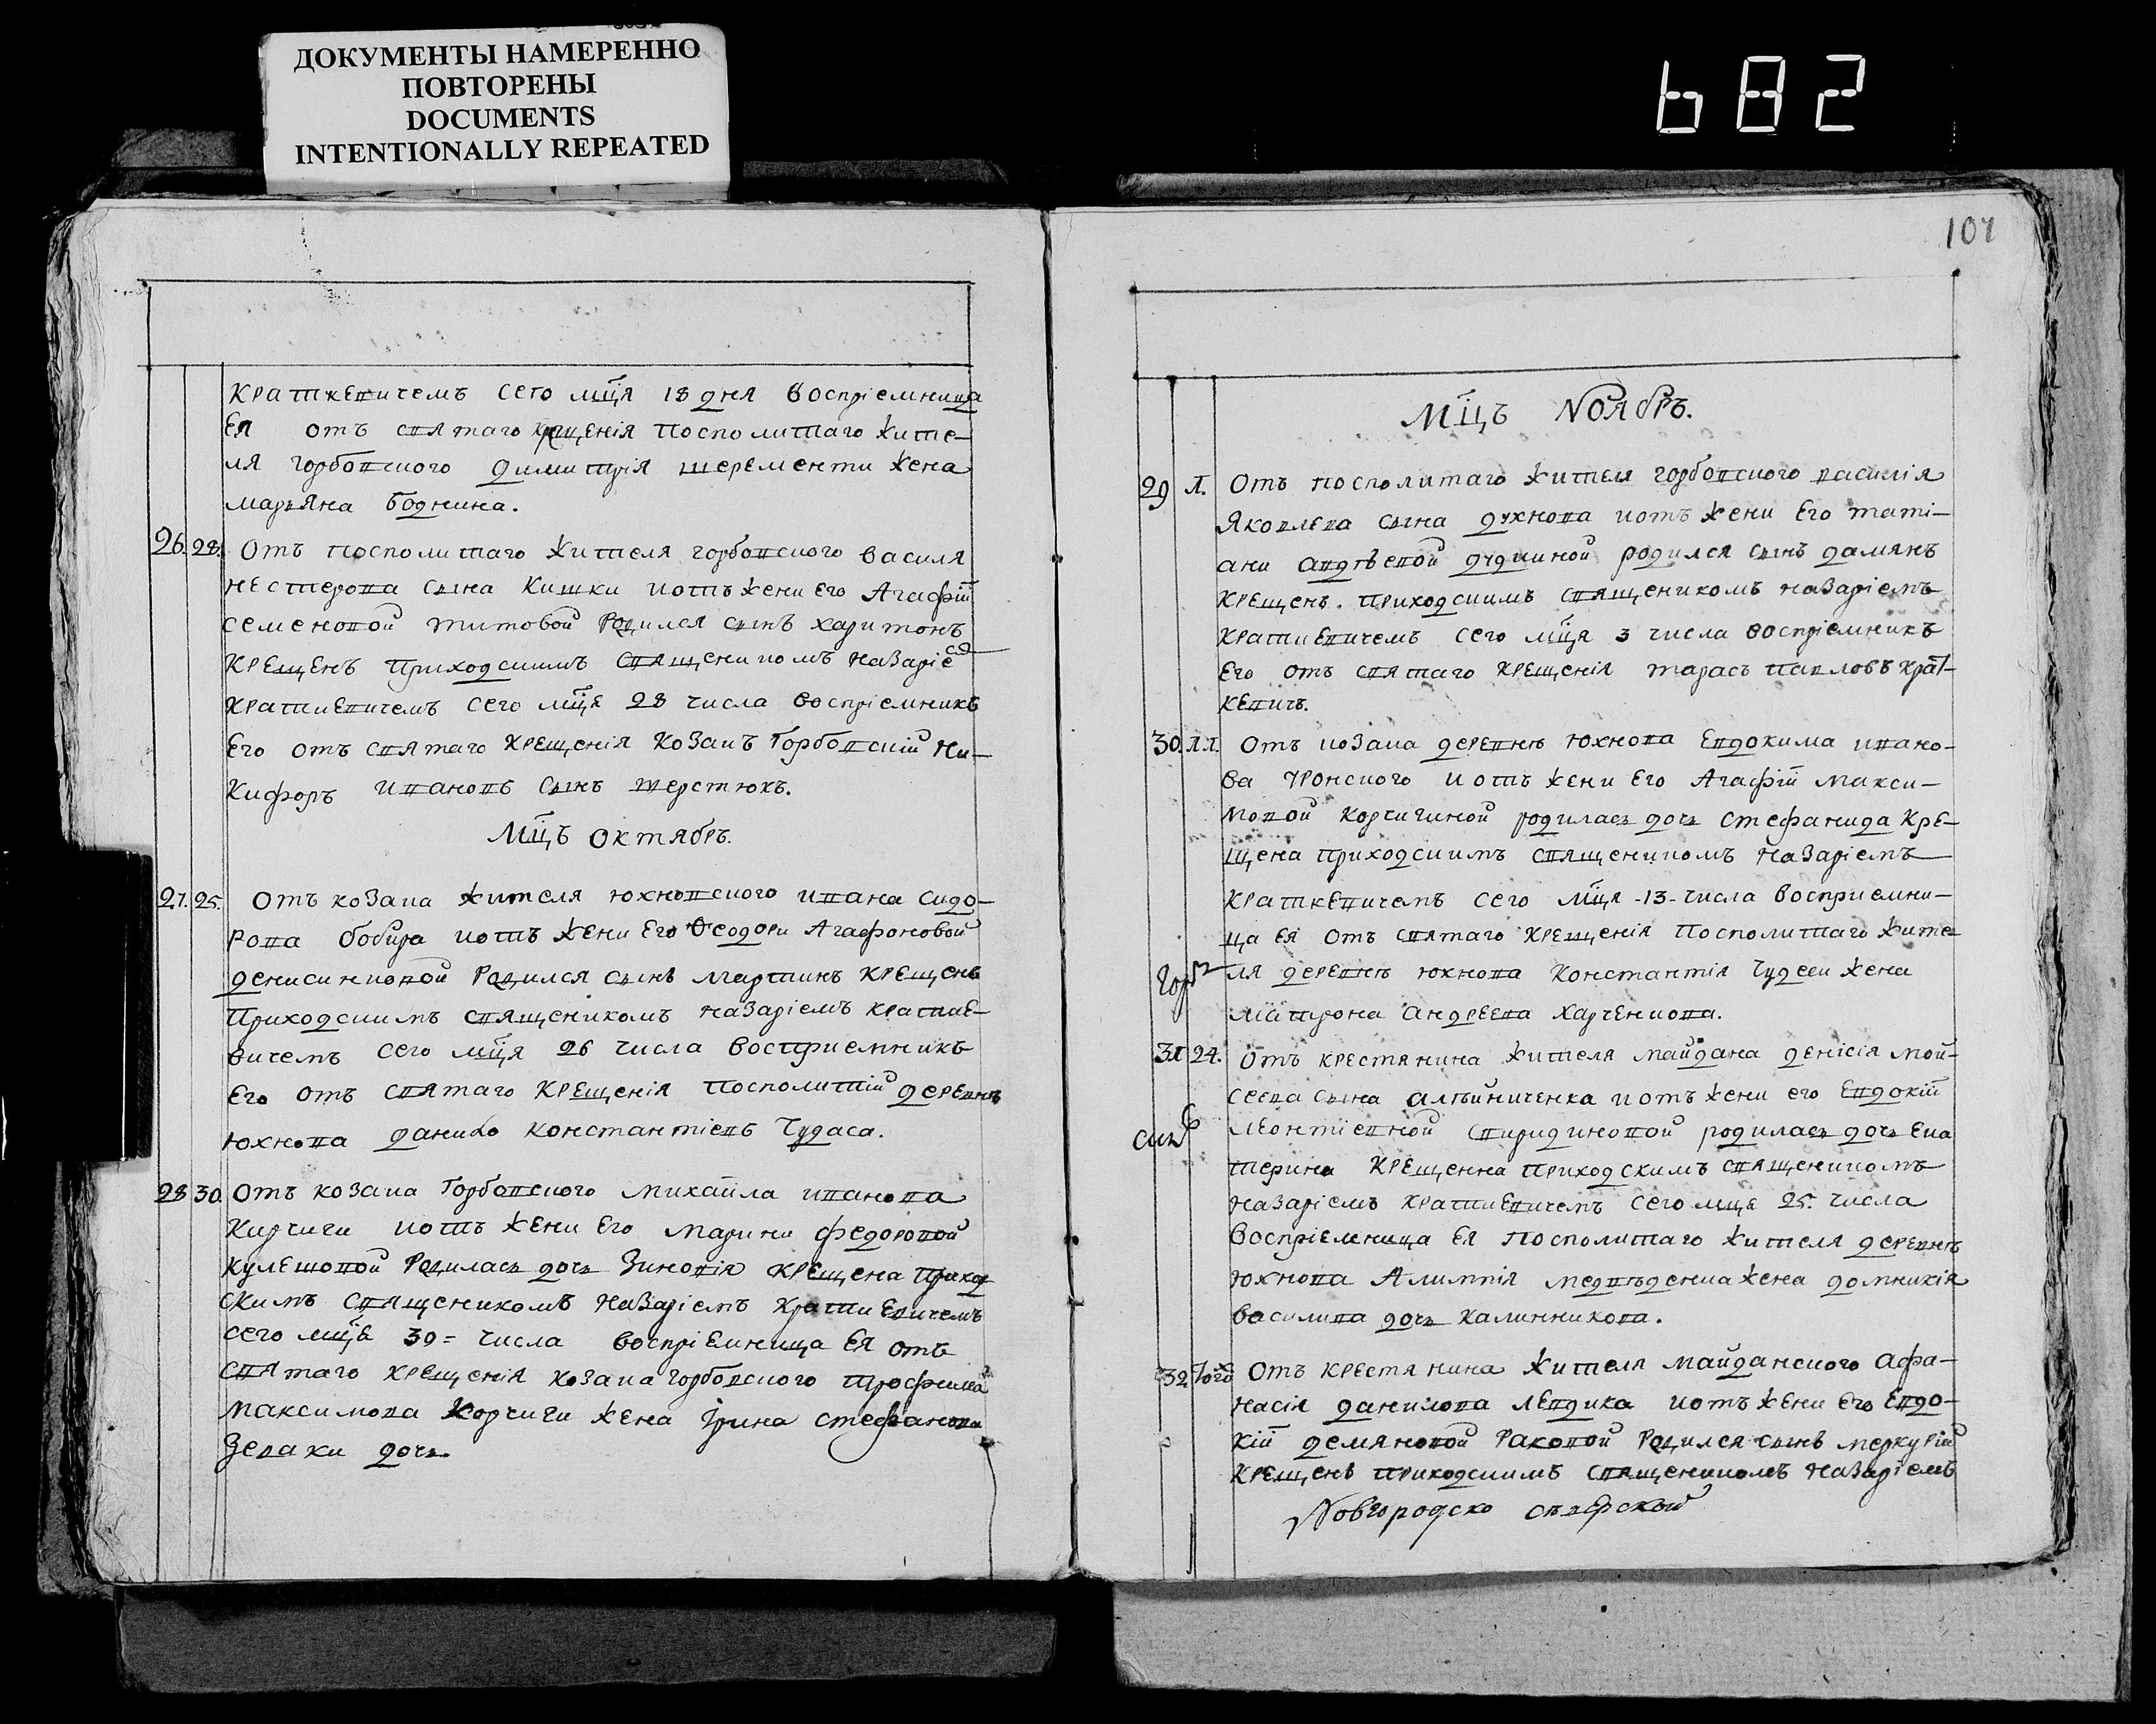 ДОКУМЕНТЫ НАМЕРЕННО
ПОВТОРЕНЫ
DOCUMENTS
INTENTIONALLY REPEATED
682
Краткевичемъ сего мц̃а 18 дня воспріемница
Ея отъ святаго крещенія посполитаго жите–
ля горбовского димитрія шеременти жена
маръяна боднина.
26. 28. Отъ посполитаго жителя горбовского василя
нестерова сына Кишки иотъ жени его Агафіи
семеновой титовой родился сынъ харитонъ
крещенъ приходскимъ священикомъ назаріе
краткевичемъ сего мц̃а 28 числа воспріемникъ
Его отъ святаго крещенія козакъ Горбовскій Ни–
кифоръ ивановъ сынъ шерстюкъ.
Мц̃ъ октябръ.
27. 25. Отъ козака жителя юхновского ивана сидо–
рова бобира иотъ жени его Ѳеодори Агафоновой
денисинковой родился сынъ мартинъ крещенъ
приходскимъ священикомъ назаріемъ кратке–
вичемъ сего мц̃я 26 числа восприемникъ
Его отъ святаго крещенія посполитій деревнѣ
юхнова данило константіевъ Чудаса.
28 30. Отъ козака Горбовского михайла иванова
Кирчиги иотъ жени Его марини федоровой
кулешовой родилась дочь Зиновія крещена приход
скимъ священикомъ назаріемъ краткевичемъ
сего мц̃а 30= числа воспріемница Ея отъ
святаго крещенія козака горбовского трофима
максимова Корчиги жена Ірина стефанова
Зеваки дочь
107
Мц̃ъ Ноябръ.
29 1. Отъ посполитаго жителя горбовского василія
Яковлева сына духнова иотъ жени Его тати–
ани авдѣевой дудкиной родился сынъ дамянъ
крещенъ. приходскимъ священикомъ назаріемъ
краткевичемъ сего мц̃я 3 числа воспріемникъ
Его отъ святаго крещенія тарасъ павловъ крат–
кевичъ.
30. 11. Отъ козака деревнѣ юхнова Евдокима ивано–
ва Уронского иотъ жени Его Агафіи Макси–
мовой корчигиной родилась дочь стефанида кре–
щена приходскимъ священикомъ назаріемъ
краткевичемъ сего мц̃я -13- числа восприемни–
ца ея отъ святаго крещенія посполитаго жите
ля деревнѣ юхнова константія Чудеси жена
матрона андреева харченкова.
31 24. Отъ крестянина жителя майдана денісія мой–
сеева сына алѣйниченка иотъ жени его Евдокіи
леонтіевной спиридиновой родилась дочь Ека
терина крещенна приходскимъ священикомъ
назаріемъ краткевичемъ сего мца 25. числа
воспріемница ея посполитаго жителя деревнѣ
юхнова Алимпія медвѣденка жена домникія
василива дочь калинникова.
32 Отъ крестянина жителя майданского афа–
насія данилова левдика иотъ жени Его Евдо–
кіи демяновой раковой родился сынъ меркурій
крещенъ приходскимъ священикомъ назаріемъ
Новгородско сѣверской